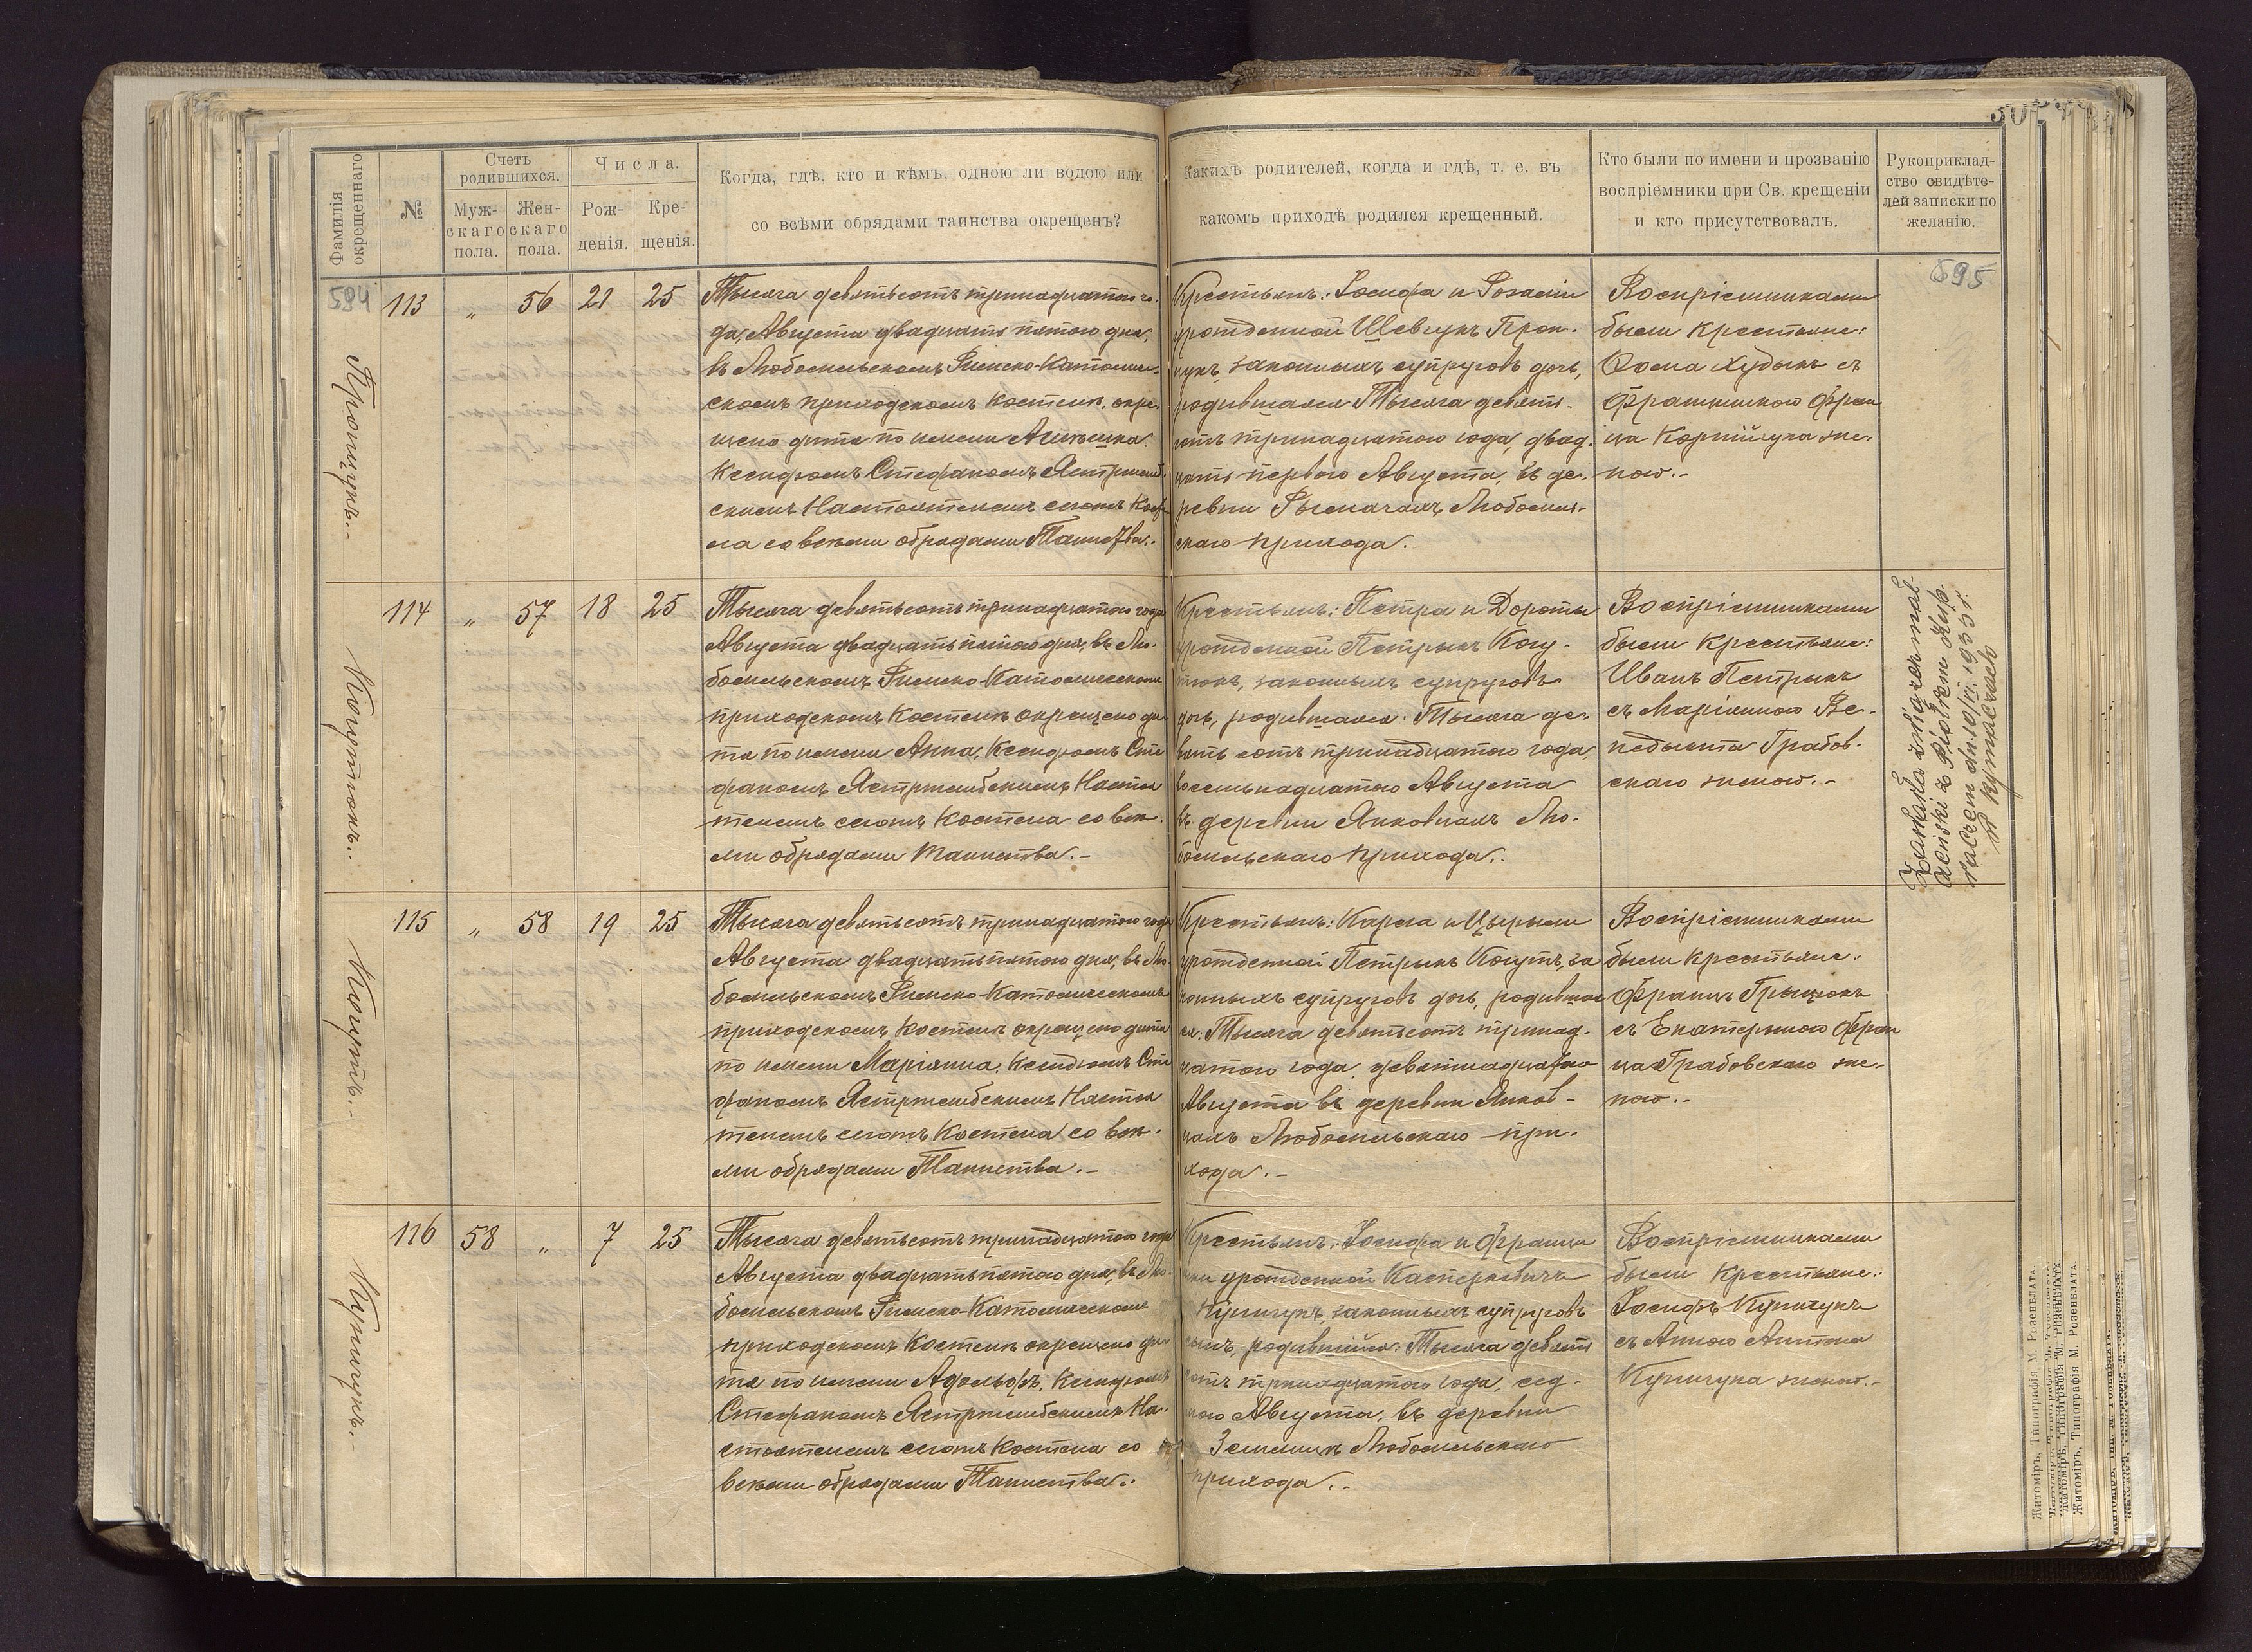 Фамилія окрещеннаго
№
Счетъ родившихся.
Муж-
скаго
пола.
Жен-
скаго
пола.
Числа.
Рож-
денія.
Кре-
щенія.
Когда, гдѣ, кто и кѣмъ, одною ли водою или
со всѣми обрядами таинства окрещенъ?
Какихъ родителей, когда и гдѣ, т. е. въ
какомъ приходѣ родился крещенный.
Кто были по имени и прозванію
воспріемники при Св. крещеніи
и кто присутствовалъ.
Рукоприклад-
ство свидѣте-
лей записки по
желанію.
594
595
113 " 56 21 25
Тысяча девятьсотъ тринадцатаго го-
да, Августа двадцать пятаго дня,
въ Любомльскомъ Римско-Католиче-
скомъ приходскомъ Костелѣ, окре-
щено дитя по имени Агнѣшка.
Ксендзомъ Стефаномъ Ястржемб-
скимъ Настоятелемъ сегожъ Косте-
ла со всѣми обрядами Таинства.
Крестьянъ: Іосифа и Розаліи
урожденной Шевчукъ Прон-
чукъ, законныхъ супруговъ дочь,
родившаяся Тысяча девять-
сотъ тринадцатого года, двад-
цать перваго Августа, въ де-
ревни Рымачахъ, Любомль-
скаго прихода.
Воспріемниками
были крестьяне:
Ѳома Худыкъ съ
Францишкою Фран
ца Корнійчука же-
ною.-
114 " 57 18 25
Когутюкъ..
Тысяча девятьсотъ тринадцатаго года
Августа двадцать пятаго дня, въ Лю-
бомльскомъ Римско-Католическомъ
приходскомъ Костелѣ окрещено ди-
тя по имени Анна, Ксендзомъ Сте
фаномъ Ястржембскимъ Настоя
телемъ сегожъ Костела со всѣ-
ми обрядами таинства.-
Крестьянъ: Петра и Дороты
урожденной Петрыкъ Когу-
тюкъ, законныхъ супруговъ
дочь, родившаяся: Тысяча де-
вять сотъ тринадцатаго года,
восемьнадцатаго Августа
въ деревни Янковцахъ Лю-
бомльскаго прихода.
Воспріемниками
были крестьяне:
Иванъ Петрыкъ
съ Маріянною Ве-
недыкта Грабов-
скаго женою.-
115 " 58 19 25
Когутъ.-
Тысяча девятьсотъ тринадцатаго года
Августа двадцать пятаго дня, въ Лю
бомльскомъ Римско-Католическомъ
приходскомъ Костелѣ окрещено дитя
по имени Маріянна, Ксендзомъ Сте
фаномъ Ястржембскимъ Настоя
телемъ сегожъ Костела со всѣ-
ми обрядами Таинства.-
Крестьянъ: Карла и Цырыли
урожденной Петрыкъ Когутъ, за
конныхъ супруговъ дочь, родившая
ся: Тысяча девятьсотъ тринад-
цатого года, девятнадцатаго
Августа въ деревни Янков-
цахъ Любомльскаго при-
хода.-
Воспріемниками
были крестьяне:
Францъ Грыцюкъ
съ Екатерыною Фран
ца Грабовскаго же-
ною.-
116 58 " 7 25
Тысяча девятьсотъ тринадцатаго года
Августа двадцать пятаго дня, въ Лю-
бомльскомъ Римско-Католическомъ
приходскомъ Костелѣ окрещено ди
тя по имени Адольфъ, Ксендзомъ
Стефаномъ Ястржембскимъ На-
стоятелемъ сегожъ Костела со
всѣми обрядами Таинства.
Крестьянъ: Іосифа и Францы
шки урожденной Касперовичъ
законныхъ супруговъ
сынъ, родившійся: Тысяча девять
сотъ тринадцатаго года, сед-
мого Августа, въ деревни
Земликъ Любомльскаго
прихода.-
Воспріемниками
были крестьяне:
Іосифъ
съ Анною Антона
женою.-
Житоміръ, Типографія М. Розенблата.
Житоміръ, Типографія М. Розенблата.